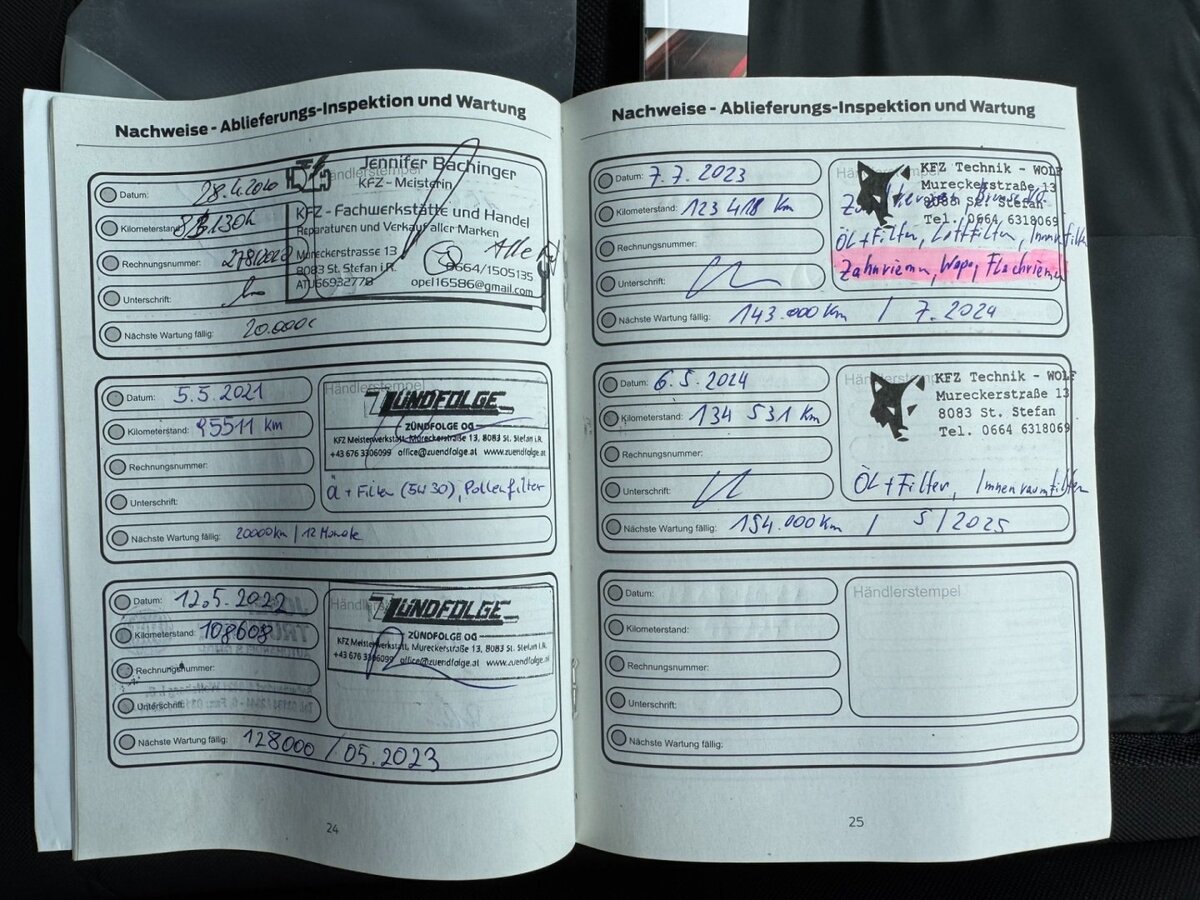 Nachweise - Ablieferungs-Inspektion und Wartung
Datum: 28.4.2020
Kilometerstand:
Rechnungsnummer:
Unterschrift:
Nächste Wartung fällig: 20.000
Händlerstempel
Jennifer Bachinger
KFZ - Meisterin
KFZ - Fachwerkstätte und Handel
Reparaturen und Verkauf aller Marken
Mureckerstrasse 13
8083 St. Stefan i.R.
0664/1505135
ATU66932778
opel16586@gmail.com
Alle
Datum: 5.5.2021
Kilometerstand: 95511 km
Rechnungsnummer:
Unterschrift:
Nächste Wartung fällig: 20000km / 12 Monate
Händlerstempel
ZÜNDFOLGE
ZÜNDFOLGE OG
KFZ Meisterwerkstatt, Mureckerstraße 13, 8083 St. Stefan i.R.
+43 676 3306099 office@zuendfolge.at www.zuendfolge.at
Öl + Filter (5W30), Pollenfilter
Datum: 12.5.2022
Kilometerstand: 108608
Rechnungsnummer:
Unterschrift:
Nächste Wartung fällig: 128000 / 05.2023
ZÜNDFOLGE
ZÜNDFOLGE OG
KFZ Meisterwerkstatt, Mureckerstraße 13, 8083 St. Stefan i.R.
+43 676 3306099 office@zuendfolge.at www.zuendfolge.at
24
Nachweise - Ablieferungs-Inspektion und Wartung
Datum: 7.7.2023
Kilometerstand: 123 418 km
Rechnungsnummer:
Unterschrift:
Nächste Wartung fällig: 143.000 km / 7.2024
KFZ Technik - WOLF
Mureckerstraße 13
8083 St. Stefan
Tel. 0664 6318069
Öl + Filter, Luftfilter, Innenfilter
Zahnriemen, Wapu, Flachriemen
Datum: 6.5.2024
Kilometerstand: 134 531 km
Rechnungsnummer:
Unterschrift:
Nächste Wartung fällig: 154.000 km / 5/2025
KFZ Technik - WOLF
Mureckerstraße 13
8083 St. Stefan
Tel. 0664 6318069
Öl + Filter, Innenraumfilter
Datum:
Kilometerstand:
Rechnungsnummer:
Unterschrift:
Nächste Wartung fällig:
Händlerstempel
25